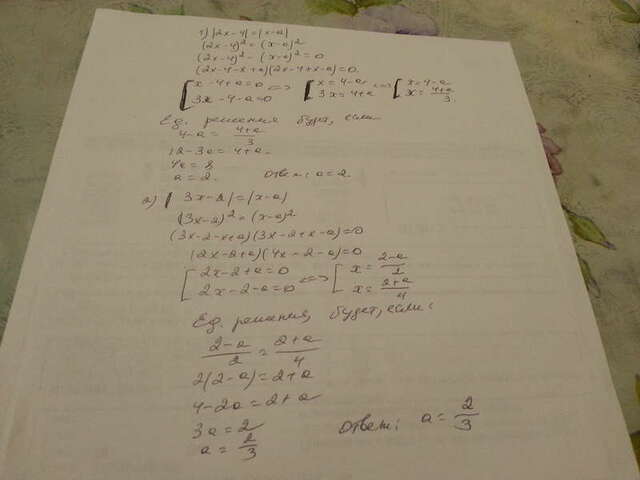 1) |2x-4|=|x-a|
(2x-4)²=(x-a)²
(2x-4)²-(x-a)²=0
(2x-4-x+a)(2x-4+x-a)=0.
[x-4+a=0 <=> [x=4-a <=> [x=4-a
3x-4-a=0 3x=4+a x=4+a/3.
Ед. решения будет, если
4-a = 4+a/3
12-3a=4+a.
4a=8
a=2. Ответ: a=2.
2) |3x-2|=|x-a|
(3x-2)²=(x-a)²
(3x-2-x+a)(3x-2+x-a)=0
(2x-2+a)(4x-2-a)=0
[2x-2+a=0 <=> [x=2-a/2
2x-2-a=0 x=2+a/4
Ед. решения, будет, если:
2-a/2=2+a/4
2(2-a)=2+a
4-2a=2+a
3a=2
a=2/3 Ответ: a=2/3